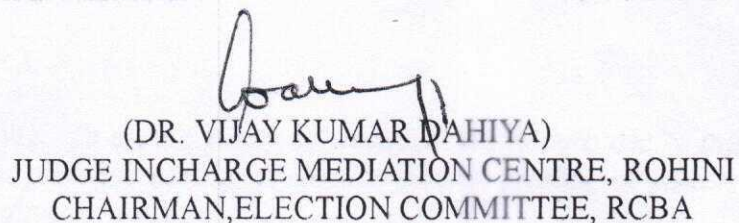 (DR. VIJAY KUMAR DAHIYA)
JUDGE INCHARGE MEDIATION CENTRE, ROHINI
CHAIRMAN,ELECTION COMMITTEE, RCBA